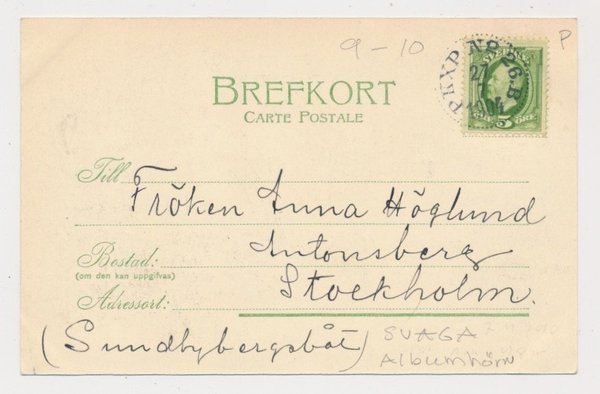 9-10
P
PKXP Nº 26.B
27
7
1904
SVERIGE
5 ÖRE
BREFKORT
CARTE POSTALE
Till Fröken Anna Höglund
Bostad: Antonsberg
(om den kan uppgifvas)
Adressort: Stockholm.
(Sundbybergsbåt)
SVAGA
Albumhörn